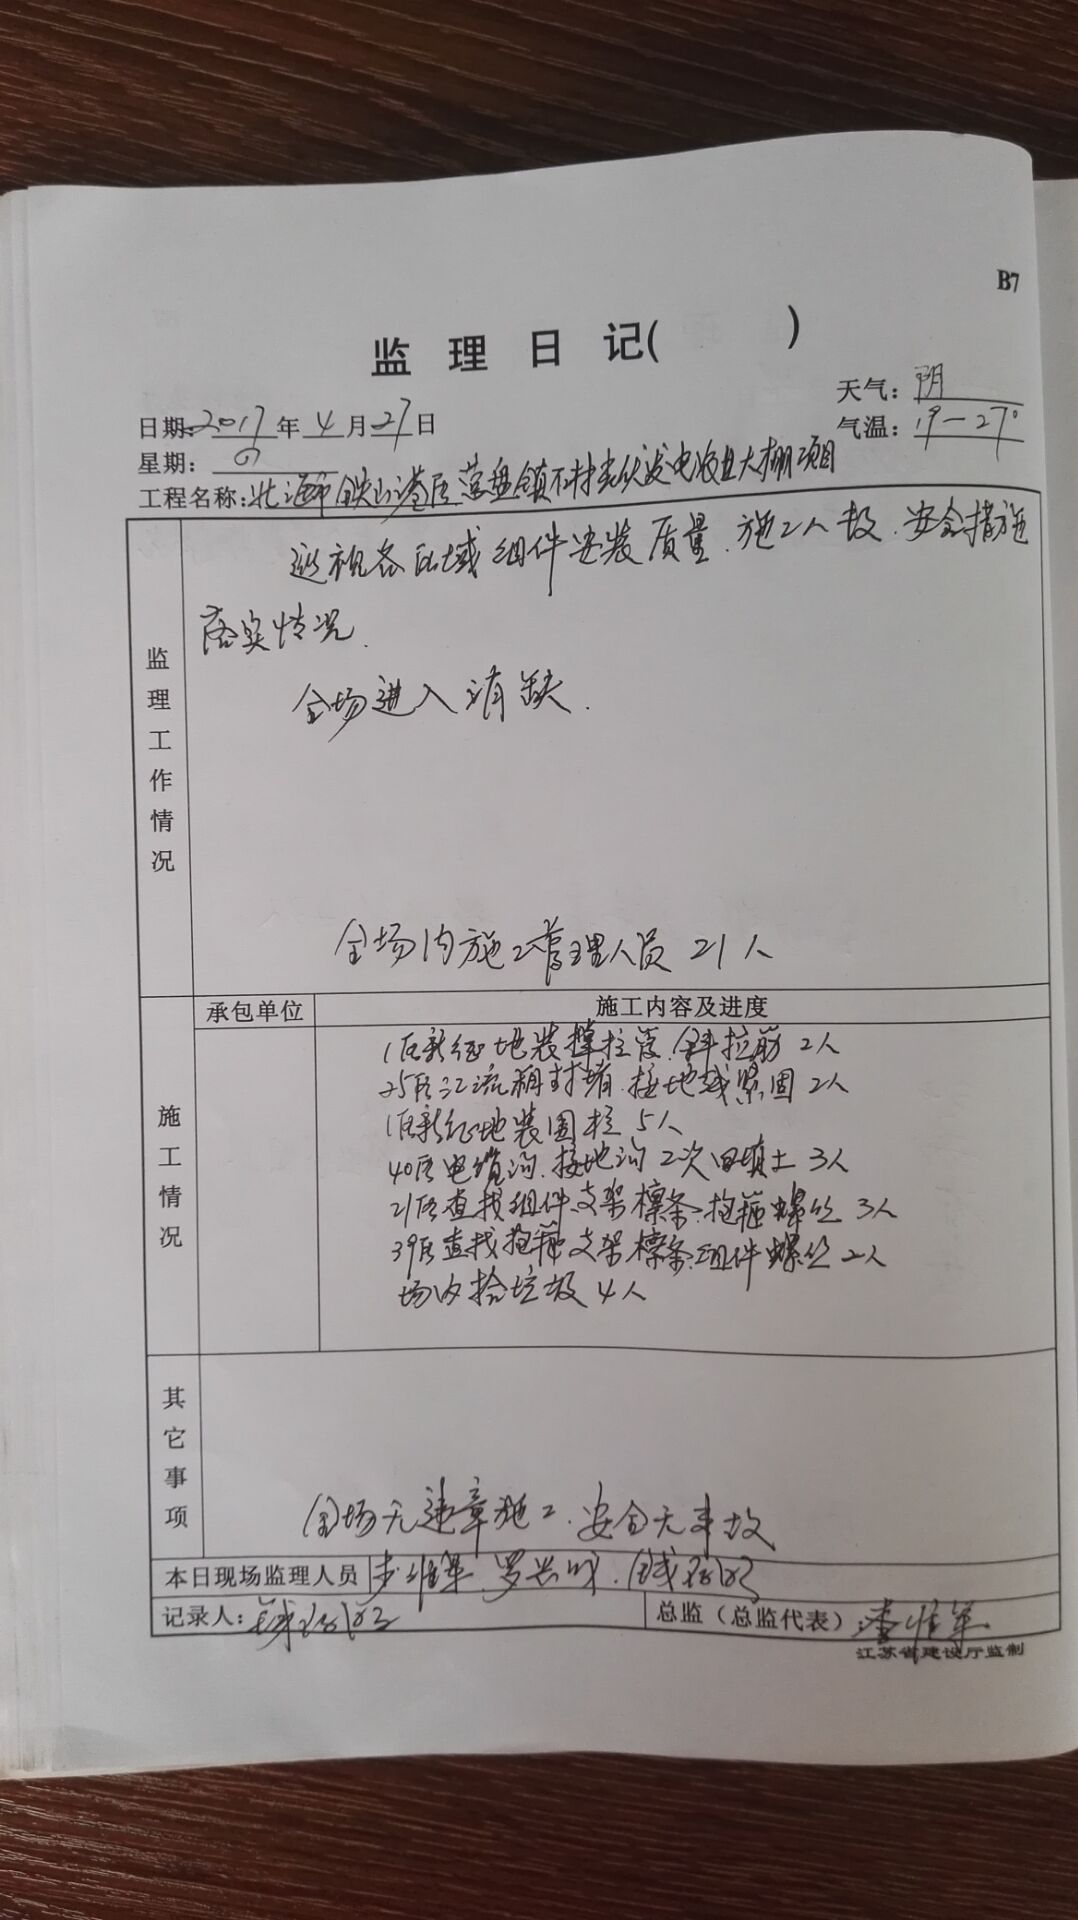 B7
监理日记( )
日期:2017年4月27日 天气:阴
星期:四 气温:19—27°
工程名称:北海市铁山港区营盘镇不村光伏发电农业大棚项目
监理工作情况
巡视各区域组件安装质量.施工人员.安全措施
落实情况.
全场进入消缺.
全场内施工管理人员21人
承包单位 施工内容及进度
施工情况
1区新征地装撑拉管.斜拉筋2人
25区汇流箱封堵.接地线紧固2人
1区新征地装围栏5人
40区电缆沟.接地沟2次回填土3人
21区查找组件.支架檩条.抱箍螺丝3人
39区查找抱箍支架檩条.组件螺丝2人
场内拾垃圾4人
其它事项
全场无违章施工.安全无事故
本日现场监理人员
记录人: 总监(总监代表)李维军
江苏省建设厅监制